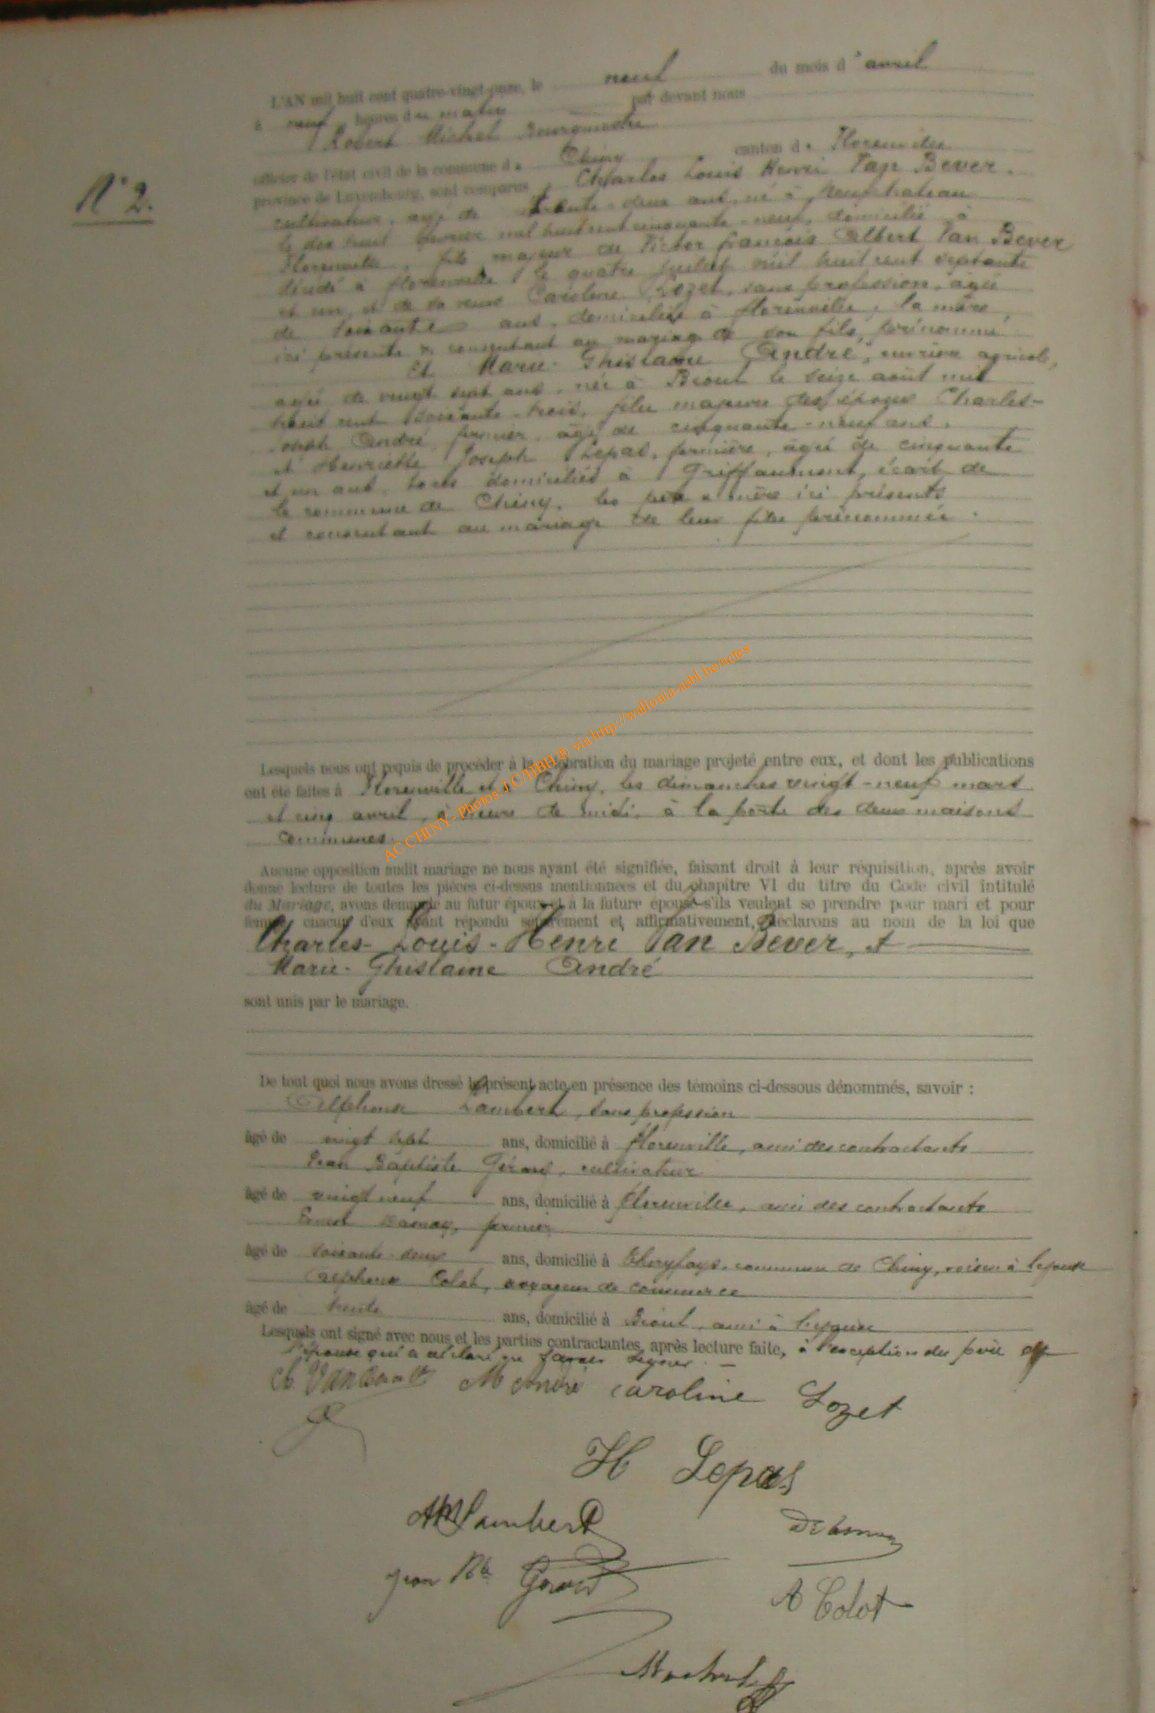 N° 2.
L'AN mil huit cent quatre-vingt-onze, le neuf du mois d'avril
à neuf heures du matin par devant nous
Robert Michel Bourgmestre
officier de l'état civil de la commune de Chiny canton de Florenville
province de Luxembourg, sont comparus Charles Louis Henri Van Bever,
cultivateur, âgé de trente-deux ans, né à Neufchateau
le dix huit février mil huit cent cinquante-neuf, domicilié à
Florenville, fils majeur de Victor françois Albert Van Bever
décédé à florenville le quatre juillet mil huit cent septante
et un, et de sa veuve Caroline Lozet, sans profession, âgée
de soixante ans, domiciliée à florenville, la mère
ici présente & consentant au mariage de son fils, prénommé
Et Marie-Ghislaine André, ouvrière agricole,
âgée de vingt sept ans, née à Bioul le seize août mil
huit cent soixante-trois, fille majeure des époux Charles-
Joseph André, fermier, âgé de cinquante-neuf ans,
et Henriette Joseph Lepas, fermière, âgée de cinquante
et un ans, tous domiciliés à Griffaumont, écart de
la commune de Chiny, les père & mère ici présents
et consentant au mariage de leur fille prénommée.
Lesquels nous ont requis de procéder à la célébration du mariage projeté entre eux, et dont les publications
ont été faites à Florenville et à Chiny, les dimanches vingt-neuf mars
et cinq avril, à l'heure de midi, à la porte des deux maisons
communes.
Aucune opposition audit mariage ne nous ayant été signifiée, faisant droit à leur réquisition, après avoir
donné lecture de toutes les pièces ci-dessus mentionnées et du chapitre VI du titre du Code civil intitulé
du Mariage, avons demandé au futur époux et à la future épouse s'ils veulent se prendre pour mari et pour
femme; chacun d'eux ayant répondu séparément et affirmativement, déclarons au nom de la loi que
Charles-Louis-Henri Van Bever, et
Marie-Ghislaine André
sont unis par le mariage.
De tout quoi nous avons dressé le présent acte en présence des témoins ci-dessous dénommés, savoir :
Alphonse Lambert, sans profession
âgé de vingt sept ans, domicilié à florenville, ami des contractants
Jean Baptiste Gérard, cultivateur
âgé de vingt neuf ans, domicilié à florenville, ami des contractants
Ernest fermier
âgé de soixante-deux ans, domicilié à commune de Chiny, voisin à l'épouse
Alphonse Colot, voyageur de commerce
âgé de trente ans, domicilié à Bioul, ami à l'épouse
Lesquels ont signé avec nous et les parties contractantes, après lecture faite, à l'exception du père de
l'épouse qui a déclaré ne savoir signer.
M André Caroline Lozet
H Lepas
Lambert
Jean Bte Gérard
A Colot
AC CHINY - Photos J.C.MBH® via http://wallonia-asbl.be/actes